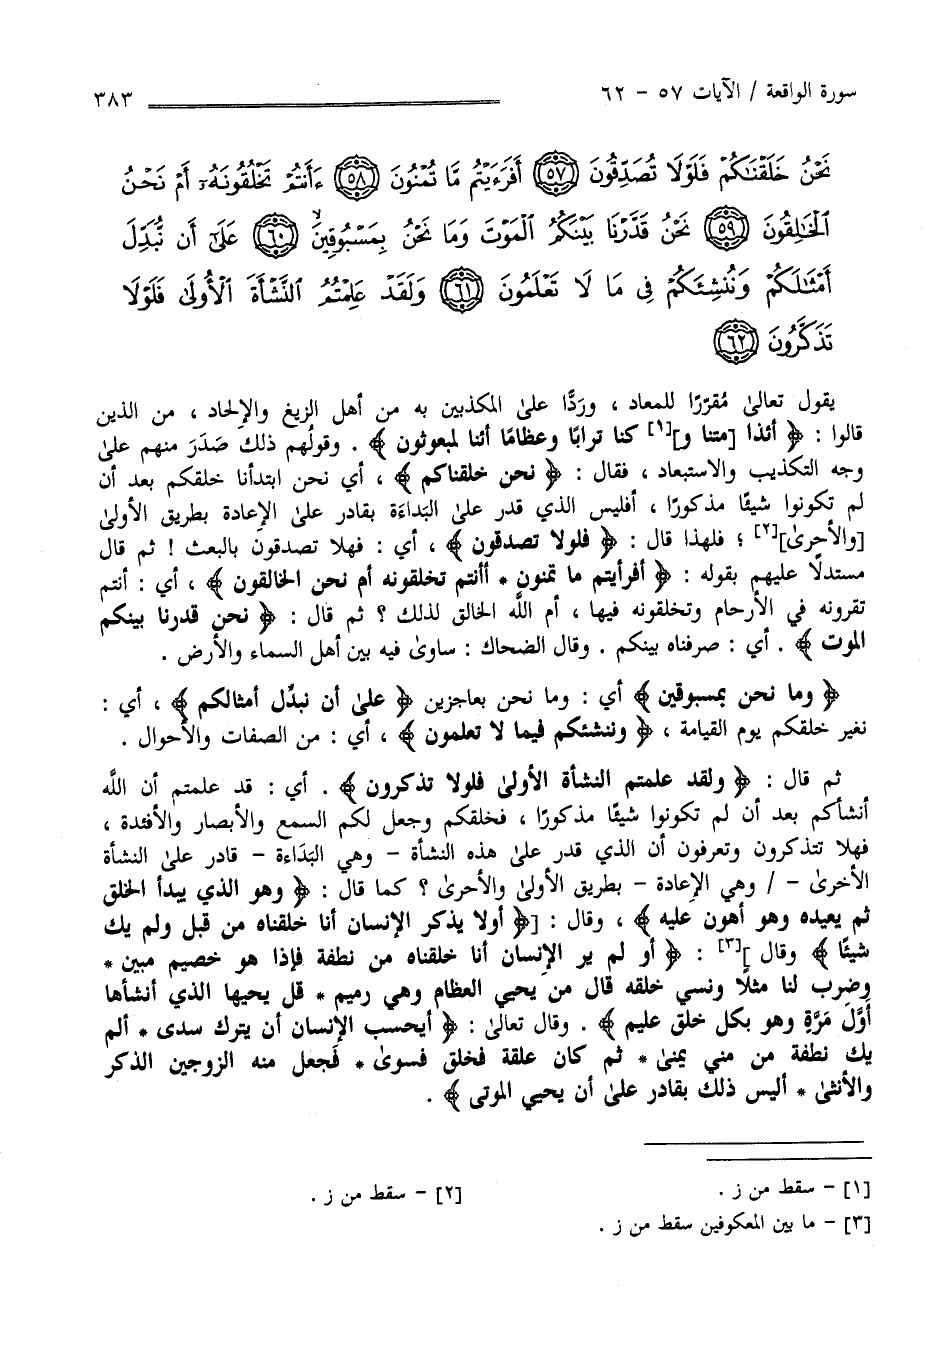 سورة الواقعة / الآيات ٥٧ - ٦٢ ٣٨٣
نَحْنُ خَلَقْنَٰكُمْ فَلَوْلَا تُصَدِّقُونَ ٥٧ أَفَرَءَيْتُم مَّا تُمْنُونَ ٥٨ ءَأَنتُمْ تَخْلُقُونَهُۥٓ أَمْ نَحْنُ
ٱلْخَٰلِقُونَ ٥٩ نَحْنُ قَدَّرْنَا بَيْنَكُمُ ٱلْمَوْتَ وَمَا نَحْنُ بِمَسْبُوقِينَ ٦٠ عَلَىٰٓ أَن نُّبَدِّلَ
أَمْثَٰلَكُمْ وَنُنشِئَكُمْ فِى مَا لَا تَعْلَمُونَ ٦١ وَلَقَدْ عَلِمْتُمُ ٱلنَّشْأَةَ ٱلْأُولَىٰ فَلَوْلَا
تَذَكَّرُونَ ٦٢
يقول تعالىٰ مُقرّرًا للمعاد ، وردًّا علىٰ المكذبين به من أهل الزيغ والإلحاد ، من الذين
قالوا : ﴿ أئذا [متنا و][١] كنا ترابًا وعظامًا أئنا لمبعوثون ﴾ . وقولُهم ذلك صَدَرَ منهم علىٰ
وجه التكذيب والاستبعاد ، فقال : ﴿ نحن خلقناكم ﴾ ، أي نحن ابتدأنا خلقكم بعد أن
لم تكونوا شيئًا مذكورًا ، أفليس الذي قدر علىٰ البَداءَة بقادر علىٰ الإعادة بطريق الأولىٰ
[والأحرىٰ][٢] ؛ فلهذا قال : ﴿ فلولا تصدقون ﴾ ، أي : فهلا تصدقون بالبعث ! ثم قال
مستدلًا عليهم بقوله : ﴿ أفرأيتم ما تمنون * أأنتم تخلقونه أم نحن الخالقون ﴾ ، أي : أنتم
تقرونه في الأرحام وتخلقونه فيها ، أم اللَّه الخالق لذلك ؟ ثم قال : ﴿ نحن قدرنا بينكم
الموت ﴾ . أي : صرفناه بينكم . وقال الضحاك : ساوىٰ فيه بين أهل السماء والأرض .
﴿ وما نحن بمسبوقين ﴾ أي : وما نحن بعاجزين ﴿ علىٰ أن نبدِّل أمثالكم ﴾ ، أي :
نغير خلقكم يوم القيامة ، ﴿ وننشئكم فيما لا تعلمون ﴾ ، أي : من الصفات والأحوال .
ثم قال : ﴿ ولقد علمتم النشأة الأولىٰ فلولا تذكرون ﴾ . أي : قد علمتم أن اللَّه
أنشأكم بعد أن لم تكونوا شيئًا مذكورًا ، فخلقكم وجعل لكم السمع والأبصار والأفئدة ،
فهلا تتذكرون وتعرفون أن الذي قدر علىٰ هذه النشأة - وهي البَدَاءة - قادر علىٰ النشأة
الأخرىٰ - / وهي الإعادة - بطريق الأولىٰ والأحرىٰ ؟ كما قال : ﴿ وهو الذي يبدأ الخلق
ثم يعيده وهو أهون عليه ﴾ ، وقال : [﴿ أولا يذكر الإنسان أنا خلقناه من قبل ولم يك
شيئًا ﴾ وقال ][٣] : ﴿ أو لم ير الإنسان أنا خلقناه من نطفة فإذا هو خصيم مبين *
وضرب لنا مثلًا ونسي خلقه قال من يحيي العظام وهي رميم * قل يحيها الذي أنشأها
أَوَّلَ مَرَّةٍ وهو بكل خلق عليم ﴾ . وقال تعالىٰ : ﴿ أيحسب الإنسان أن يترك سدى * ألم
يك نطفة من مني يمنىٰ * ثم كان علقة فخلق فسوىٰ * فجعل منه الزوجين الذكر
والأنثىٰ * أليس ذلك بقادر علىٰ أن يحيي الموتى ﴾ .
[١] - سقط من ز . [٢] - سقط من ز .
[٣] - ما بين المعكوفين سقط من ز .